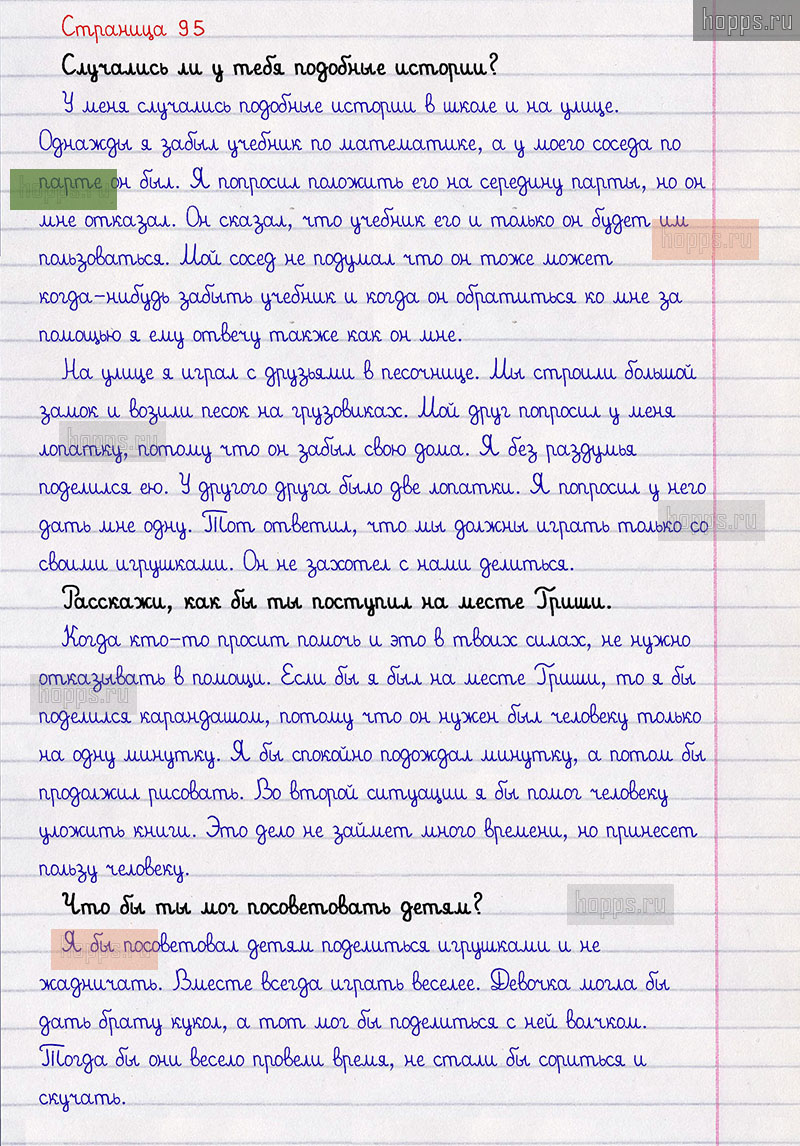 hopps.ru
Страница 95
Случались ли у тебя подобные истории?
У меня случались подобные истории в школе и на улице.
Однажды я забыл учебник по математике, а у моего соседа по
парте он был. Я попросил положить его на середину парты, но он
hopps.ru
мне отказал. Он сказал, что учебник его и только он будет им
hopps.ru
пользоваться. Мой сосед не подумал что он тоже может
когда-нибудь забыть учебник и когда он обратиться ко мне за
помощью я ему отвечу также как он мне.
На улице я играл с друзьями в песочнице. Мы строили большой
замок и возили песок на грузовиках. Мой друг попросил у меня
hopps.ru
лопатку, потому что он забыл свою дома. Я без раздумья
поделился ею. У другого друга было две лопатки. Я попросил у него
дать мне одну. Тот ответил, что мы должны играть только со
hopps.ru
своими игрушками. Он не захотел с нами делиться.
Расскажи, как бы ты поступил на месте Гриши.
Когда кто-то просит помочь и это в твоих силах, не нужно
отказывать в помощи. Если бы я был на месте Гриши, то я бы
hopps.ru
поделился карандашом, потому что он нужен был человеку только
на одну минутку. Я бы спокойно подождал минутку, а потом бы
продолжил рисовать. Во второй ситуации я бы помог человеку
уложить книги. Это дело не займет много времени, но принесет
пользу человеку.
hopps.ru
Что бы ты мог посоветовать детям?
Я бы посоветовал детям поделиться игрушками и не
hopps.ru
жадничать. Вместе всегда играть веселее. Девочка могла бы
дать брату кукол, а тот мог бы поделиться с ней волчком.
Тогда бы они весело провели время, не стали бы сориться и
скучать.